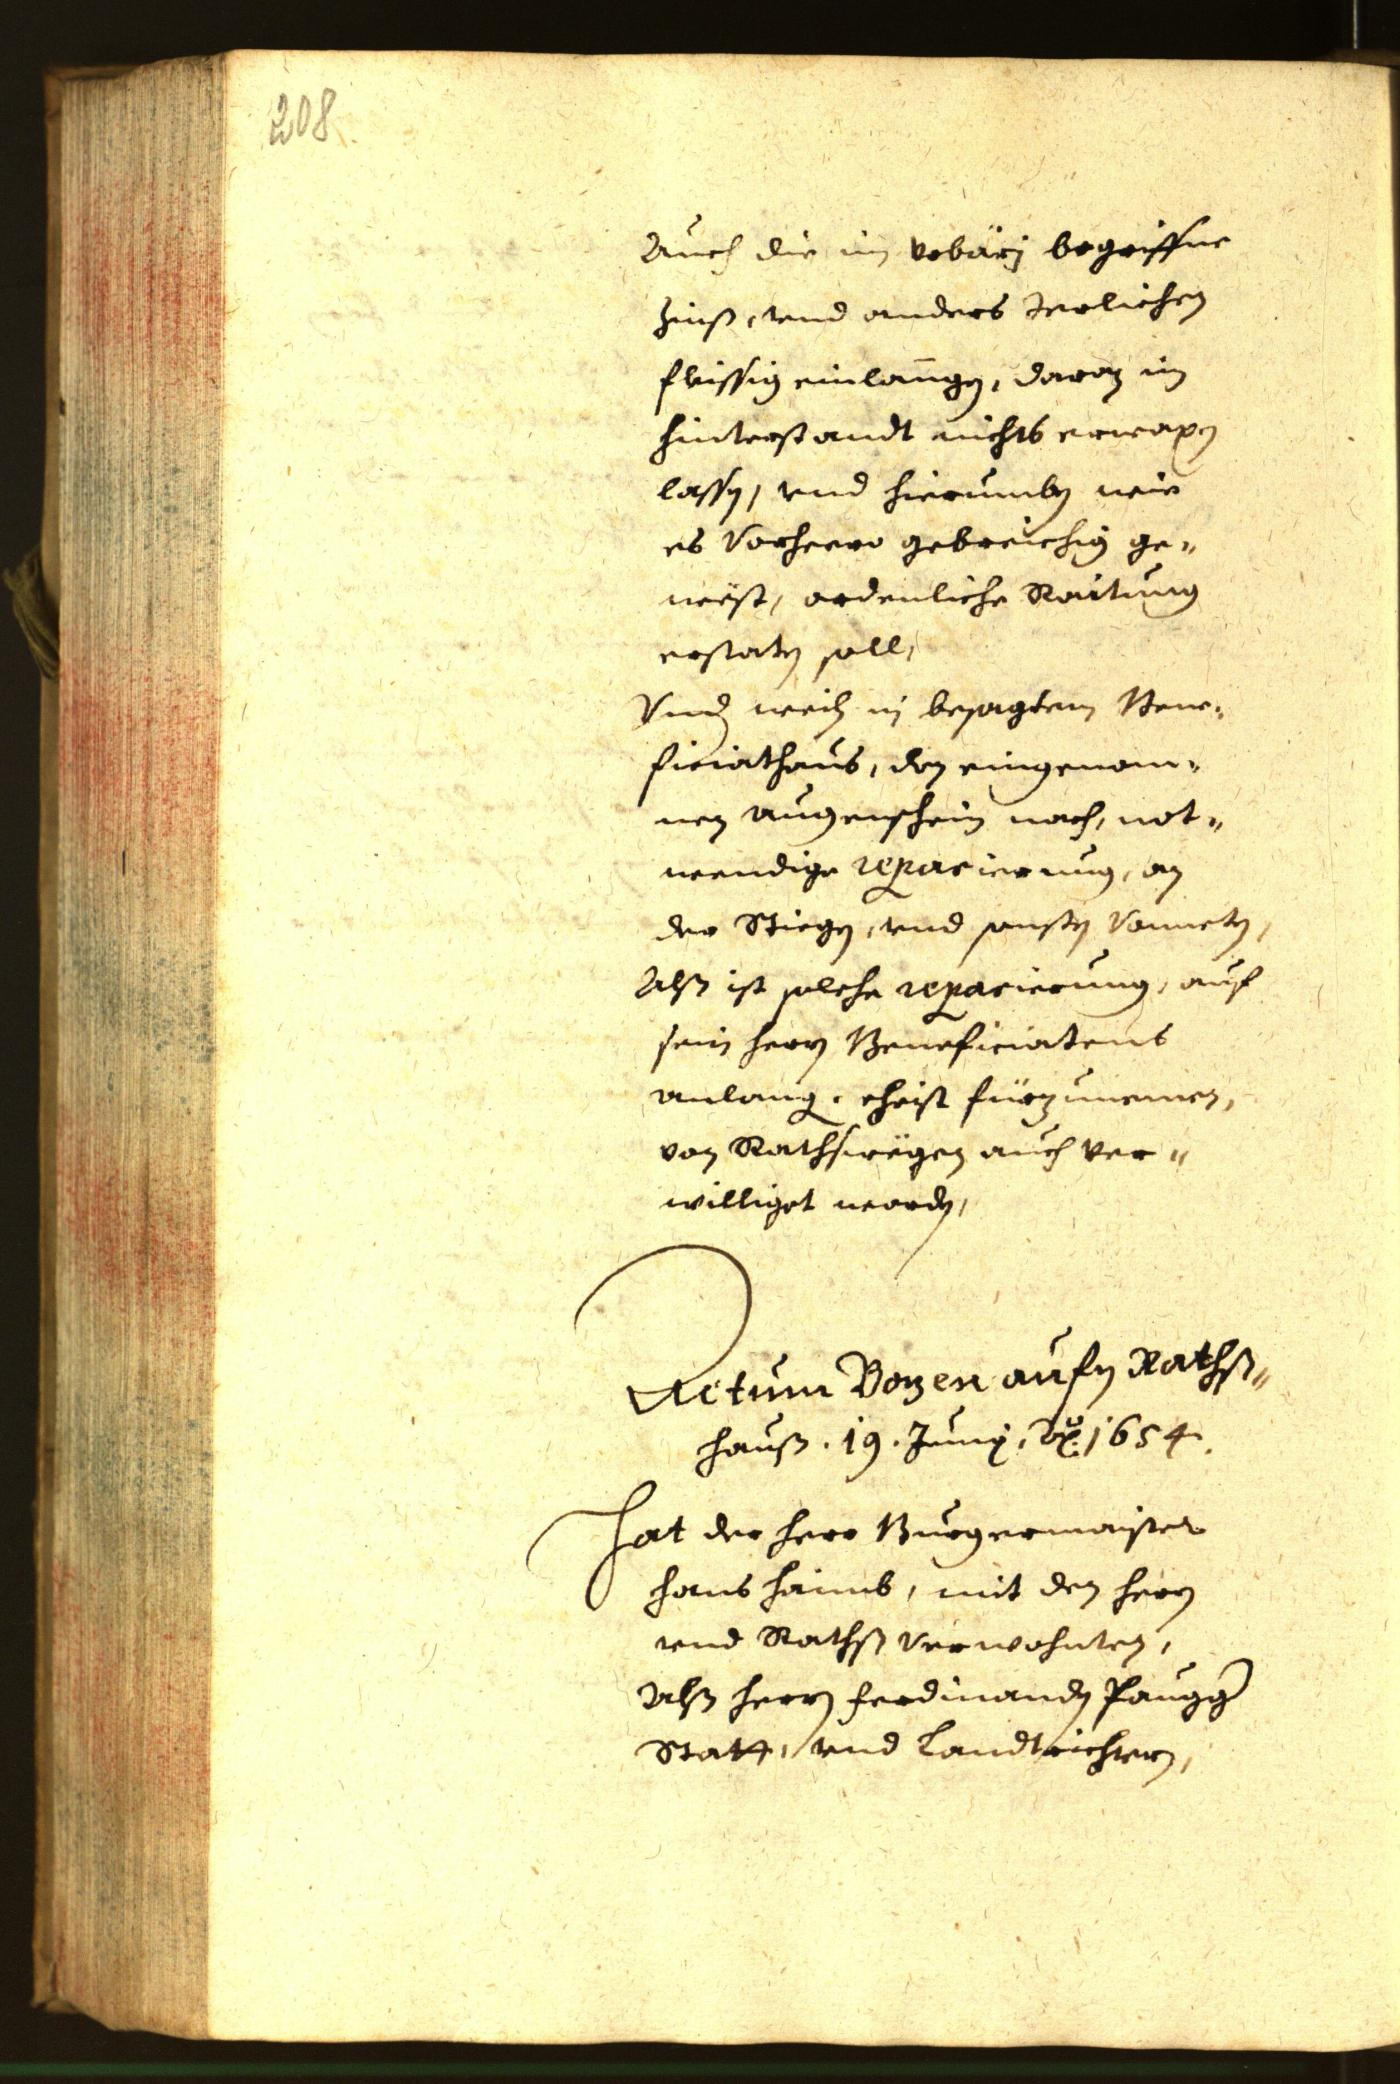 208
Auch die im vrbärj begriffne
Zinß, vnd anders Jerlichen
fleissig einlanngen, daran im
hinterstandt nichts erwaxen
lassen, vnd hierumben wie
es Vorheero gebreichig ge„
wëst, ordenliche Raitung
erstaten soll,
Vnd weil in besagtem Bene„
ficiathaus, den eingenom„
nen augenschein nach, not„
wendige reparierung, an
der Stiegen, vnd sonsten Vonneten,
Alß ist solche reparierung, auf
sein herrn Beneficiatens
anlang, eheist fürzunemen,
von Rathswëgen auch ver„
williget worden,
Actum Bozen aufn Rathß„
hauß. 19. Junij. Ao. 1654.
Hat der herr Burgermaister
hans haimb, mit den herrn
vnd Rathß Verwohnten,
Alß herrn Ferdinanden
Statt, vnd Landtrichtern,